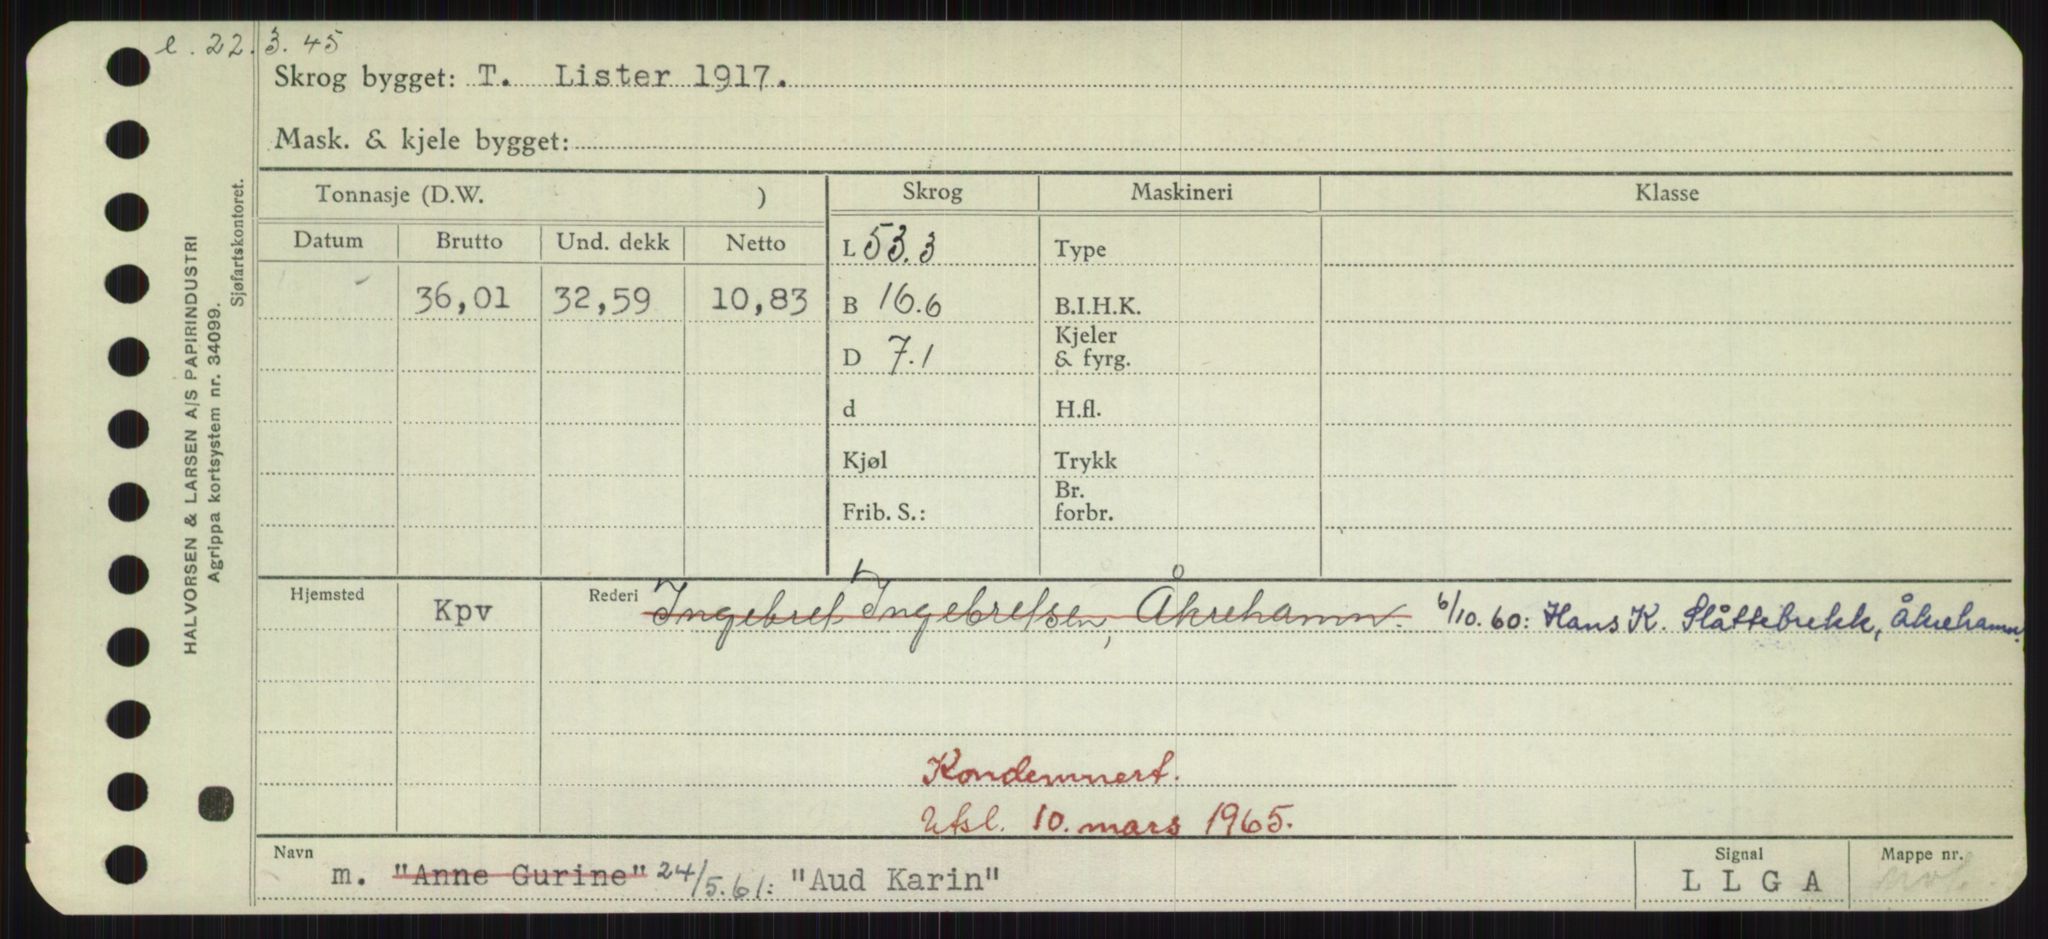 e. 22.3.45
Skrog bygget: T. Lister 1917.
Mask. & kjele bygget:
Tonnasje (D.W. ) Skrog Maskineri Klasse
Datum Brutto Und. dekk Netto L 53.3 Type
36,01 32,59 10,83 B 16.6 B.I.H.K.
D 7.1 Kjeler & fyrg.
d H.fl.
Kjøl Trykk
Frib. S.: Br. forbr.
Hjemsted Kpv Rederi Ingebret Ingebretsen, Åkrehamn. 6/10.60: Hans K. Slåttebrekk, Åkrehamn.
Kondemnert.
Utsl. 10. mars 1965.
Navn m. "Anne Gurine" 24/5.61: "Aud Karin" Signal L L G A Mappe nr.
HALVORSEN & LARSEN A/S PAPIRINDUSTRI
Agrippa kortsystem nr. 34099.
Sjøfartskontoret.